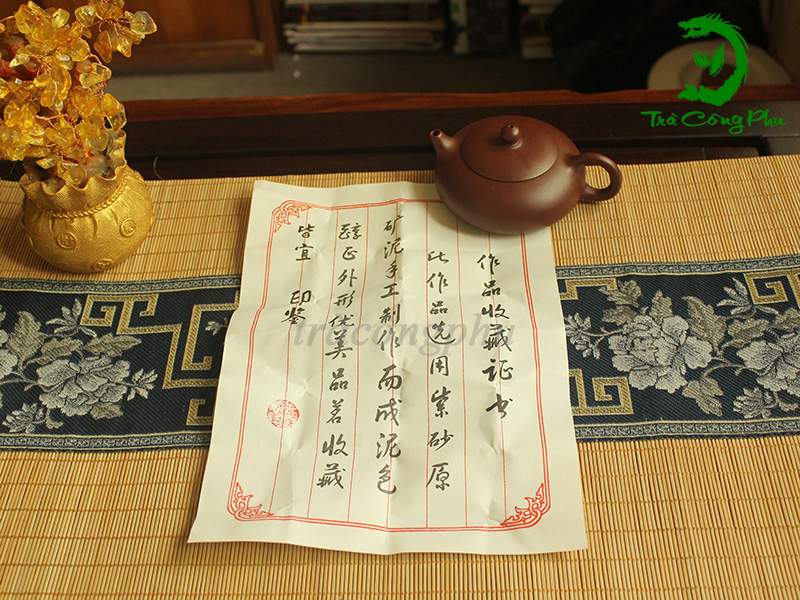 作品收藏证书
此作品先用紫砂原
矿泥手工制作而成泥色
醇正外形优美品茗收藏
皆宜 印鉴
Trà Công Phu
tracongphu